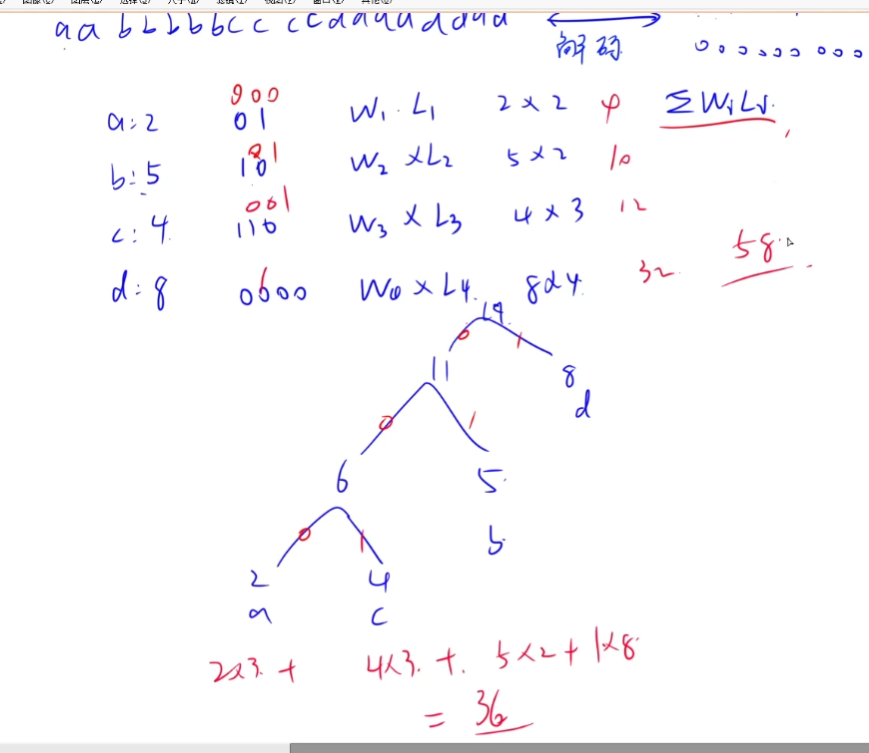 aabbbbbcc ccdddddddd
解码
000
a:2 01 W₁·L₁ 2×2 4 ΣWᵢLᵢ
01
b:5 10 W₂×L₂ 5×2 10
001
c:4 110 W₃×L₃ 4×3 12
58
d:8 0000 ×L₄ 8×4 32
19
0 1
11 8
d
0 1
6 5
b
0 1
2 4
a c
2×3 + 4×3 + 5×2 + 1×8
= 36